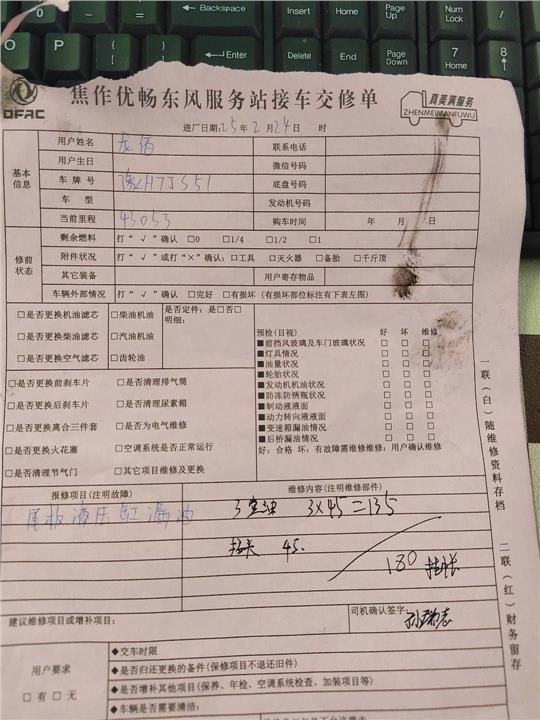 Backspace
Insert
Home
Page Up
Num Lock
/
O
P
{ [
} ]
Enter
Delete
End
Page Down
7 Home
8
DFAC
焦作优畅东风服务站接车交修单
真美满服务
ZHENMEIMANFUWU
进厂日期:25年2月24日 时
基本信息
用户姓名
联系电话
用户生日
微信号码
车 牌 号 豫CH7JS51
底盘号码
车 型
发动机号码
当前里程 45053
购车时间 年 月 日
修前状态
剩余燃料 打“√”确认 □0 □1/4 □1/2 □1
附件状况 打“√”或打“×”确认:□工具 □灭火器 □备胎 □千斤顶
其它装备
用户寄存物品
车辆外部情况 打“√”确认 □完好 □有损坏 (有损坏部位标注有下表左图)
□是否更换机油滤芯 □柴油机油
□是否更换柴油滤芯 □汽油机油
□是否更换空气滤芯 □齿轮油
是否定件: 是□否□
明细:
□是否更换前刹车片 □是否清理排气筒
□是否更换后刹车片 □是否清理尿素箱
□是否更换离合三件套 □是否为电气维修
□是否更换火花塞 □空调系统是否正常运行
□是否清理节气门 □其它项目维修及更换
预检(目视) 好 坏 维修
■前挡风玻璃及车门玻璃状况 □ □ □
■灯具情况 □ □ □
■油量状况 □ □ □
■轮胎状况 □ □ □
■发动机机油状况 □ □ □
■防冻防锈瓶状况 □ □ □
■制动液液面 □ □ □
■动力转向液液面 □ □ □
■变速箱漏油情况 □ □ □
■后桥漏油情况 □ □ □
好: 合格 坏: 有故障需维修维修: 用户确认维修
报修项目(注明故障)
维修内容(注明维修部件)
尾板液压缸漏油
3×45=135
45.
180 挂帐
建议维修项目或增补项目:
司机确认签字:
用户要求
□有 □无
◆交车时限
◆是否归还更换的备件(保修项目不退还旧件)
◆是否增补其他项目(保养、年检、空调系统检查、加装项目等)
◆车辆是否需要清洁:
一联(白)随维修资料存档
二联(红)财务留存